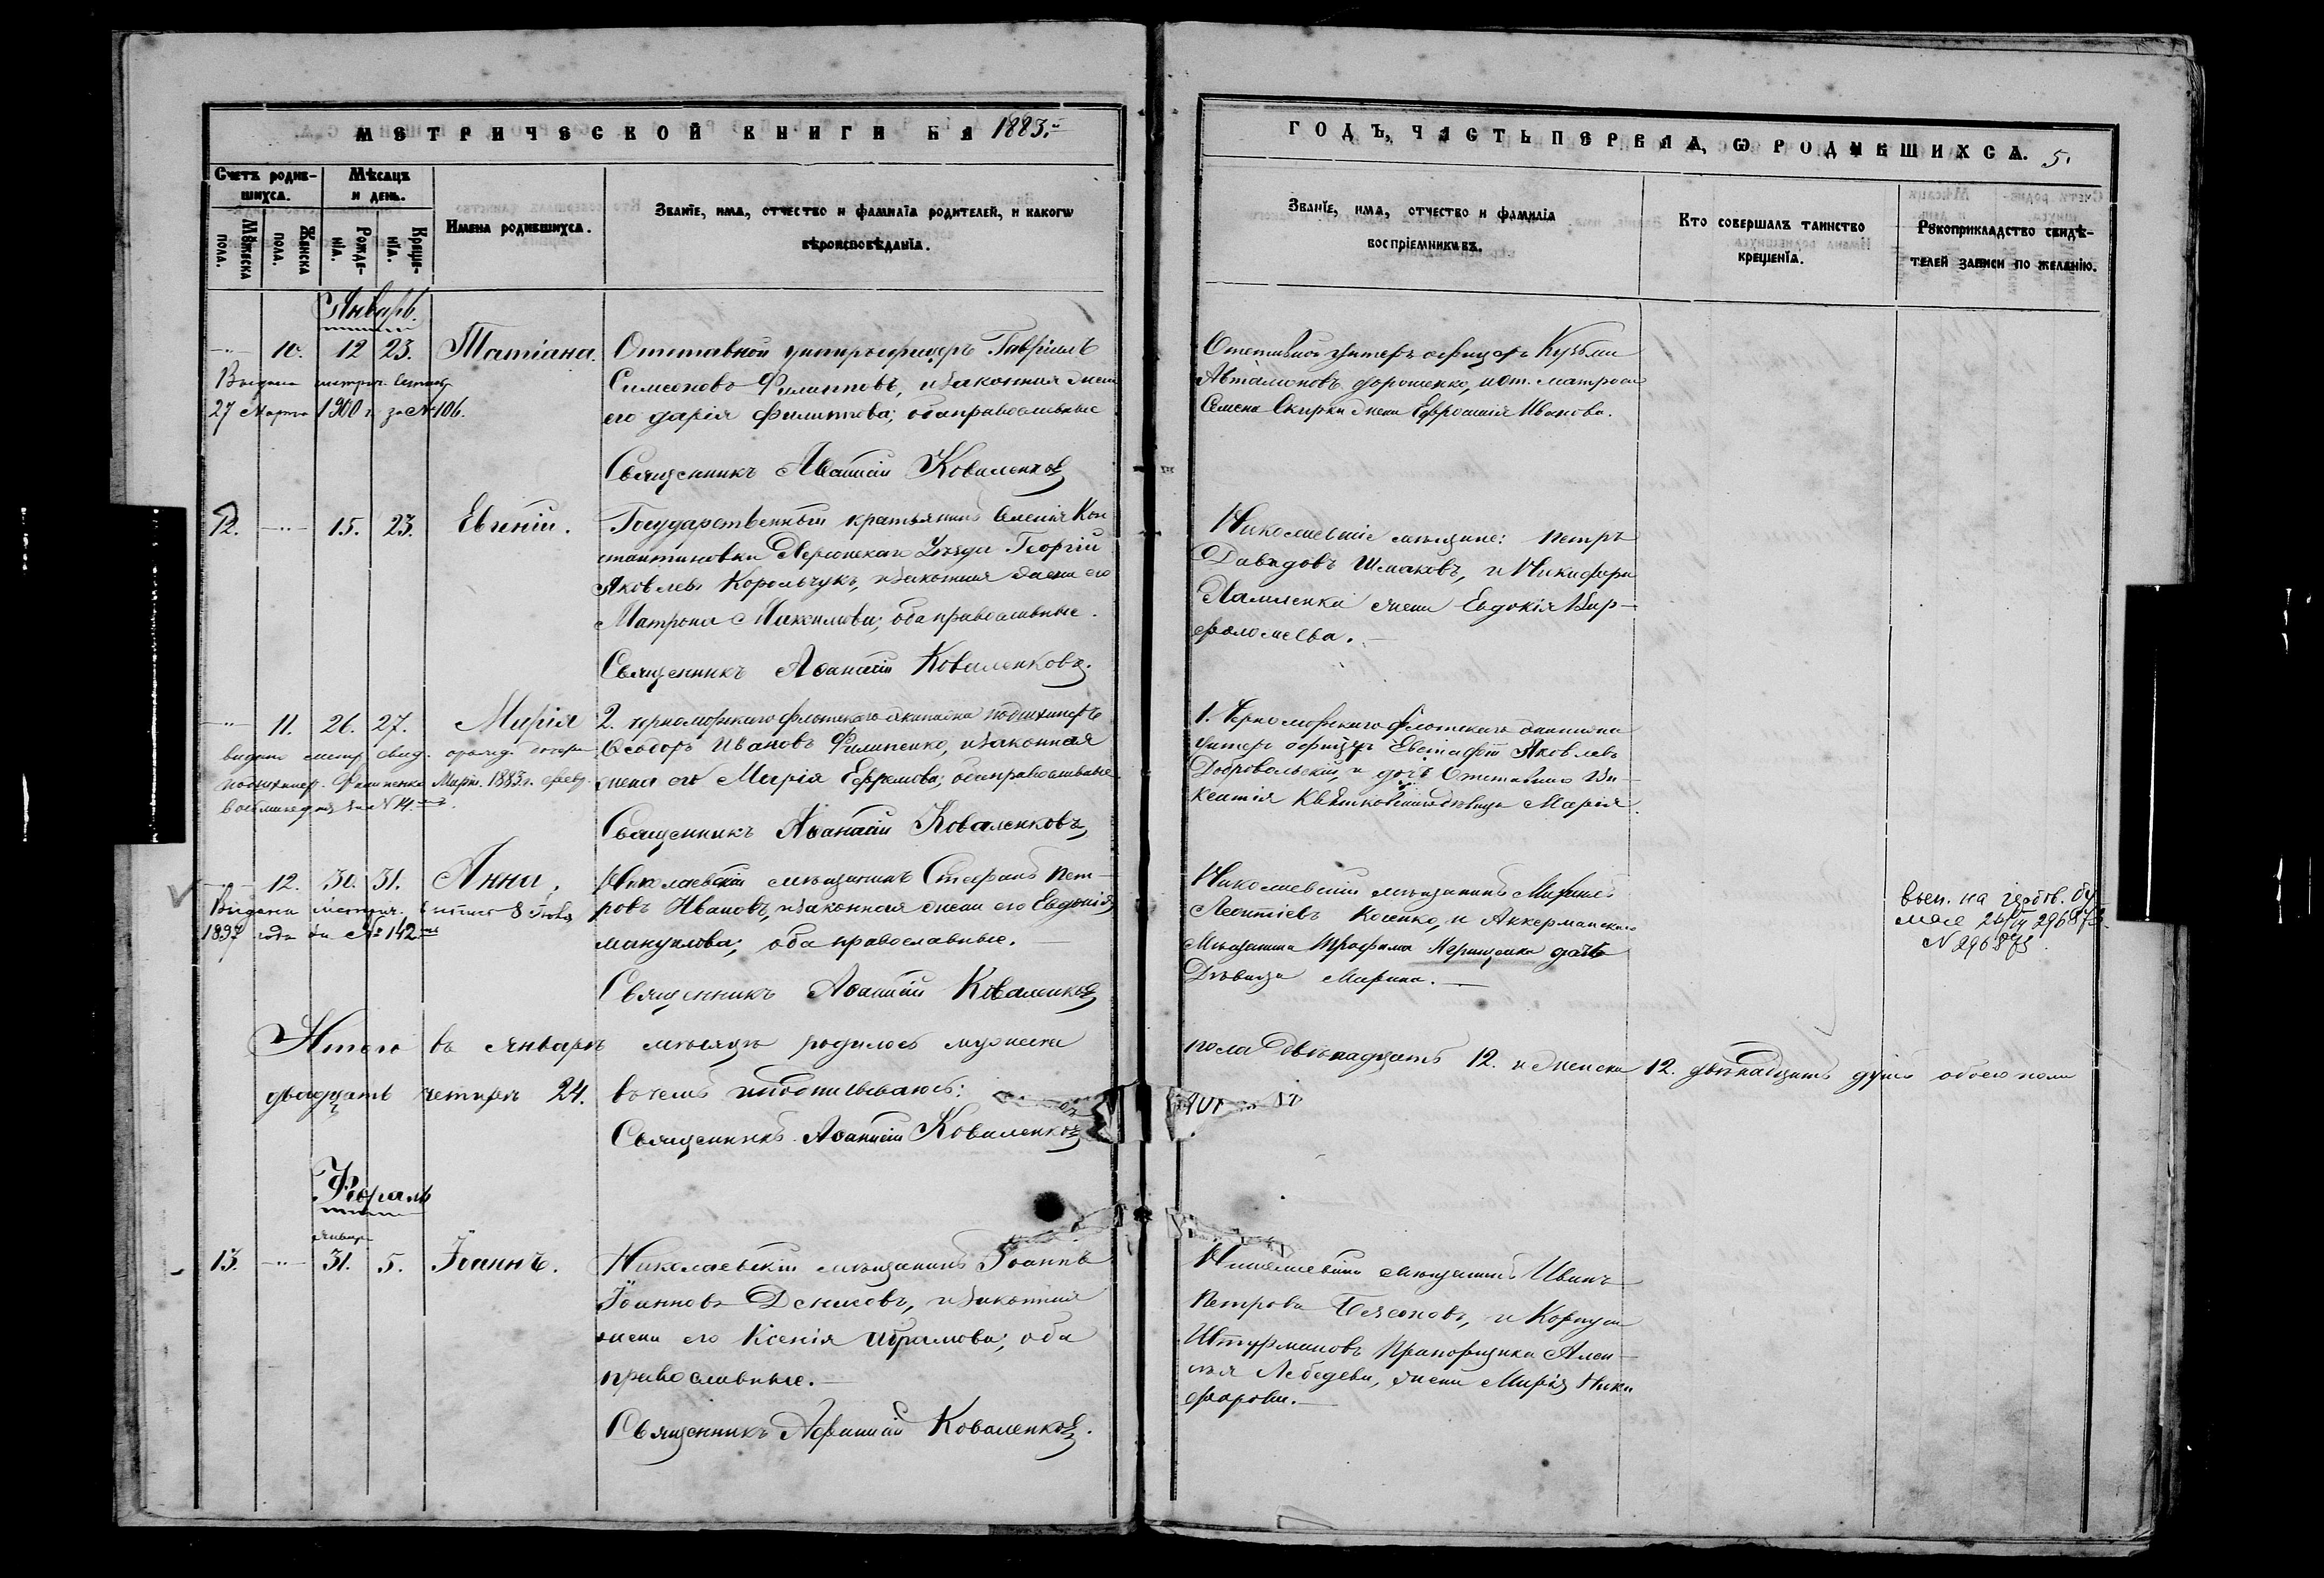 МЕТРИЧЕСКОЙ КНИГИ НА 1883.
Счетъ родив-
шихся.
Мѣсяцъ
и день.
Мужеска
пола.
Женска
пола.
Рожде-
нія.
Креще-
нія.
Имена родившихся.
Званіе, имя, отчество и фамилія родителей, и какого
вѣроисповѣданія.
Январь.
10. 12 23. Татіана.
Выдана метрич.
27 Марта 1900 г. за № 106.
Отставной унтерофицеръ Гавріилъ
Симеоновъ Филипповъ, и законная жена
его Дарія Филиппова; оба православные
Священникъ Аѳанасій Коваленковъ
12. 15. 23. Евгеній.
Государственный крестьянинъ Селенія Кон-
стантиновки Херсонскаго Уѣзда Георгій
Яковлевъ Корольчукъ, и законная жена его
Матрона Максимова; оба православные.
Священникъ Аѳанасій Коваленковъ.
11. 26. 27. Марія
видано метр. свид. дочери
подшкипер. Филипенка Маріи. 1883 г. февр.
за № 14.
2. черноморскаго флотскаго экипажа подшкиперъ
Ѳеодоръ Ивановъ Филипенко, и законная
жена его Марія Ефремова; оба православные
Священникъ Аѳанасій Коваленковъ
12. 30. 31. Анна.
Выдана метрич. выпись 8
1897 года за № 142
Николаевскій мѣщанинъ Стефанъ Пет-
ровъ Ивановъ, и законная жена его Евдокія
Мануилова; оба православные.
Священникъ Аѳанасій Коваленковъ
Итого въ Январѣ мѣсяцѣ родилось мужеска
двадцать четыре 24. въ чемъ и подписываюсь:
Священникъ Аѳанасій Коваленковъ
Февраль
января
13. 31. 5. Іоаннъ.
Николаевскій мѣщанинъ Іоаннъ
Іоанновъ Денисовъ, и законная
жена его Ксенія Абрамова; оба
православные.
Священникъ Аѳанасій Коваленковъ.
ГОДЪ, ЧАСТЬ ПЕРВАЯ, Ѡ РОДИВШИХСЯ. 5.
Званіе, имя, отчество и фамилія
воспріемниковъ.
Кто совершалъ таинство
крещенія.
Рукоприкладство свидѣ-
телей записи по желанію.
Отставной Унтеръ офицеръ Кузьма
Автамоновъ Дорошенко, и от. матроса
Семена Скирки жена Ефросинія Иванова.
Николаевскіе мѣщане: Петръ
Давидовъ Шмаковъ, и Никифора
жена Евдокія Вар-
фоломеева.
1. Черноморскаго флотскаго экипажа
Унтеръ офицеръ Евстафій Яковлевъ
Добровольскій, и дочь Отставнаго Ви-
кентія дѣвица Марія.
Николаевскій мѣщанинъ Михаилъ
Леонтіевъ Косенко, и Аккерманскаго
Мѣщанина Трофима дочь
Дѣвица Марина.
вып. на гербов. бу-
маге
№ 296873
пола двѣнадцать 12. и женска 12. двѣнадцать душъ обоего пола
Николаевскій мѣщанинъ Иванъ
Петровъ и Корпуса
Штурмановъ Прапорщика Алек-
сѣя Лебедева, жена Марія Ники-
форова.